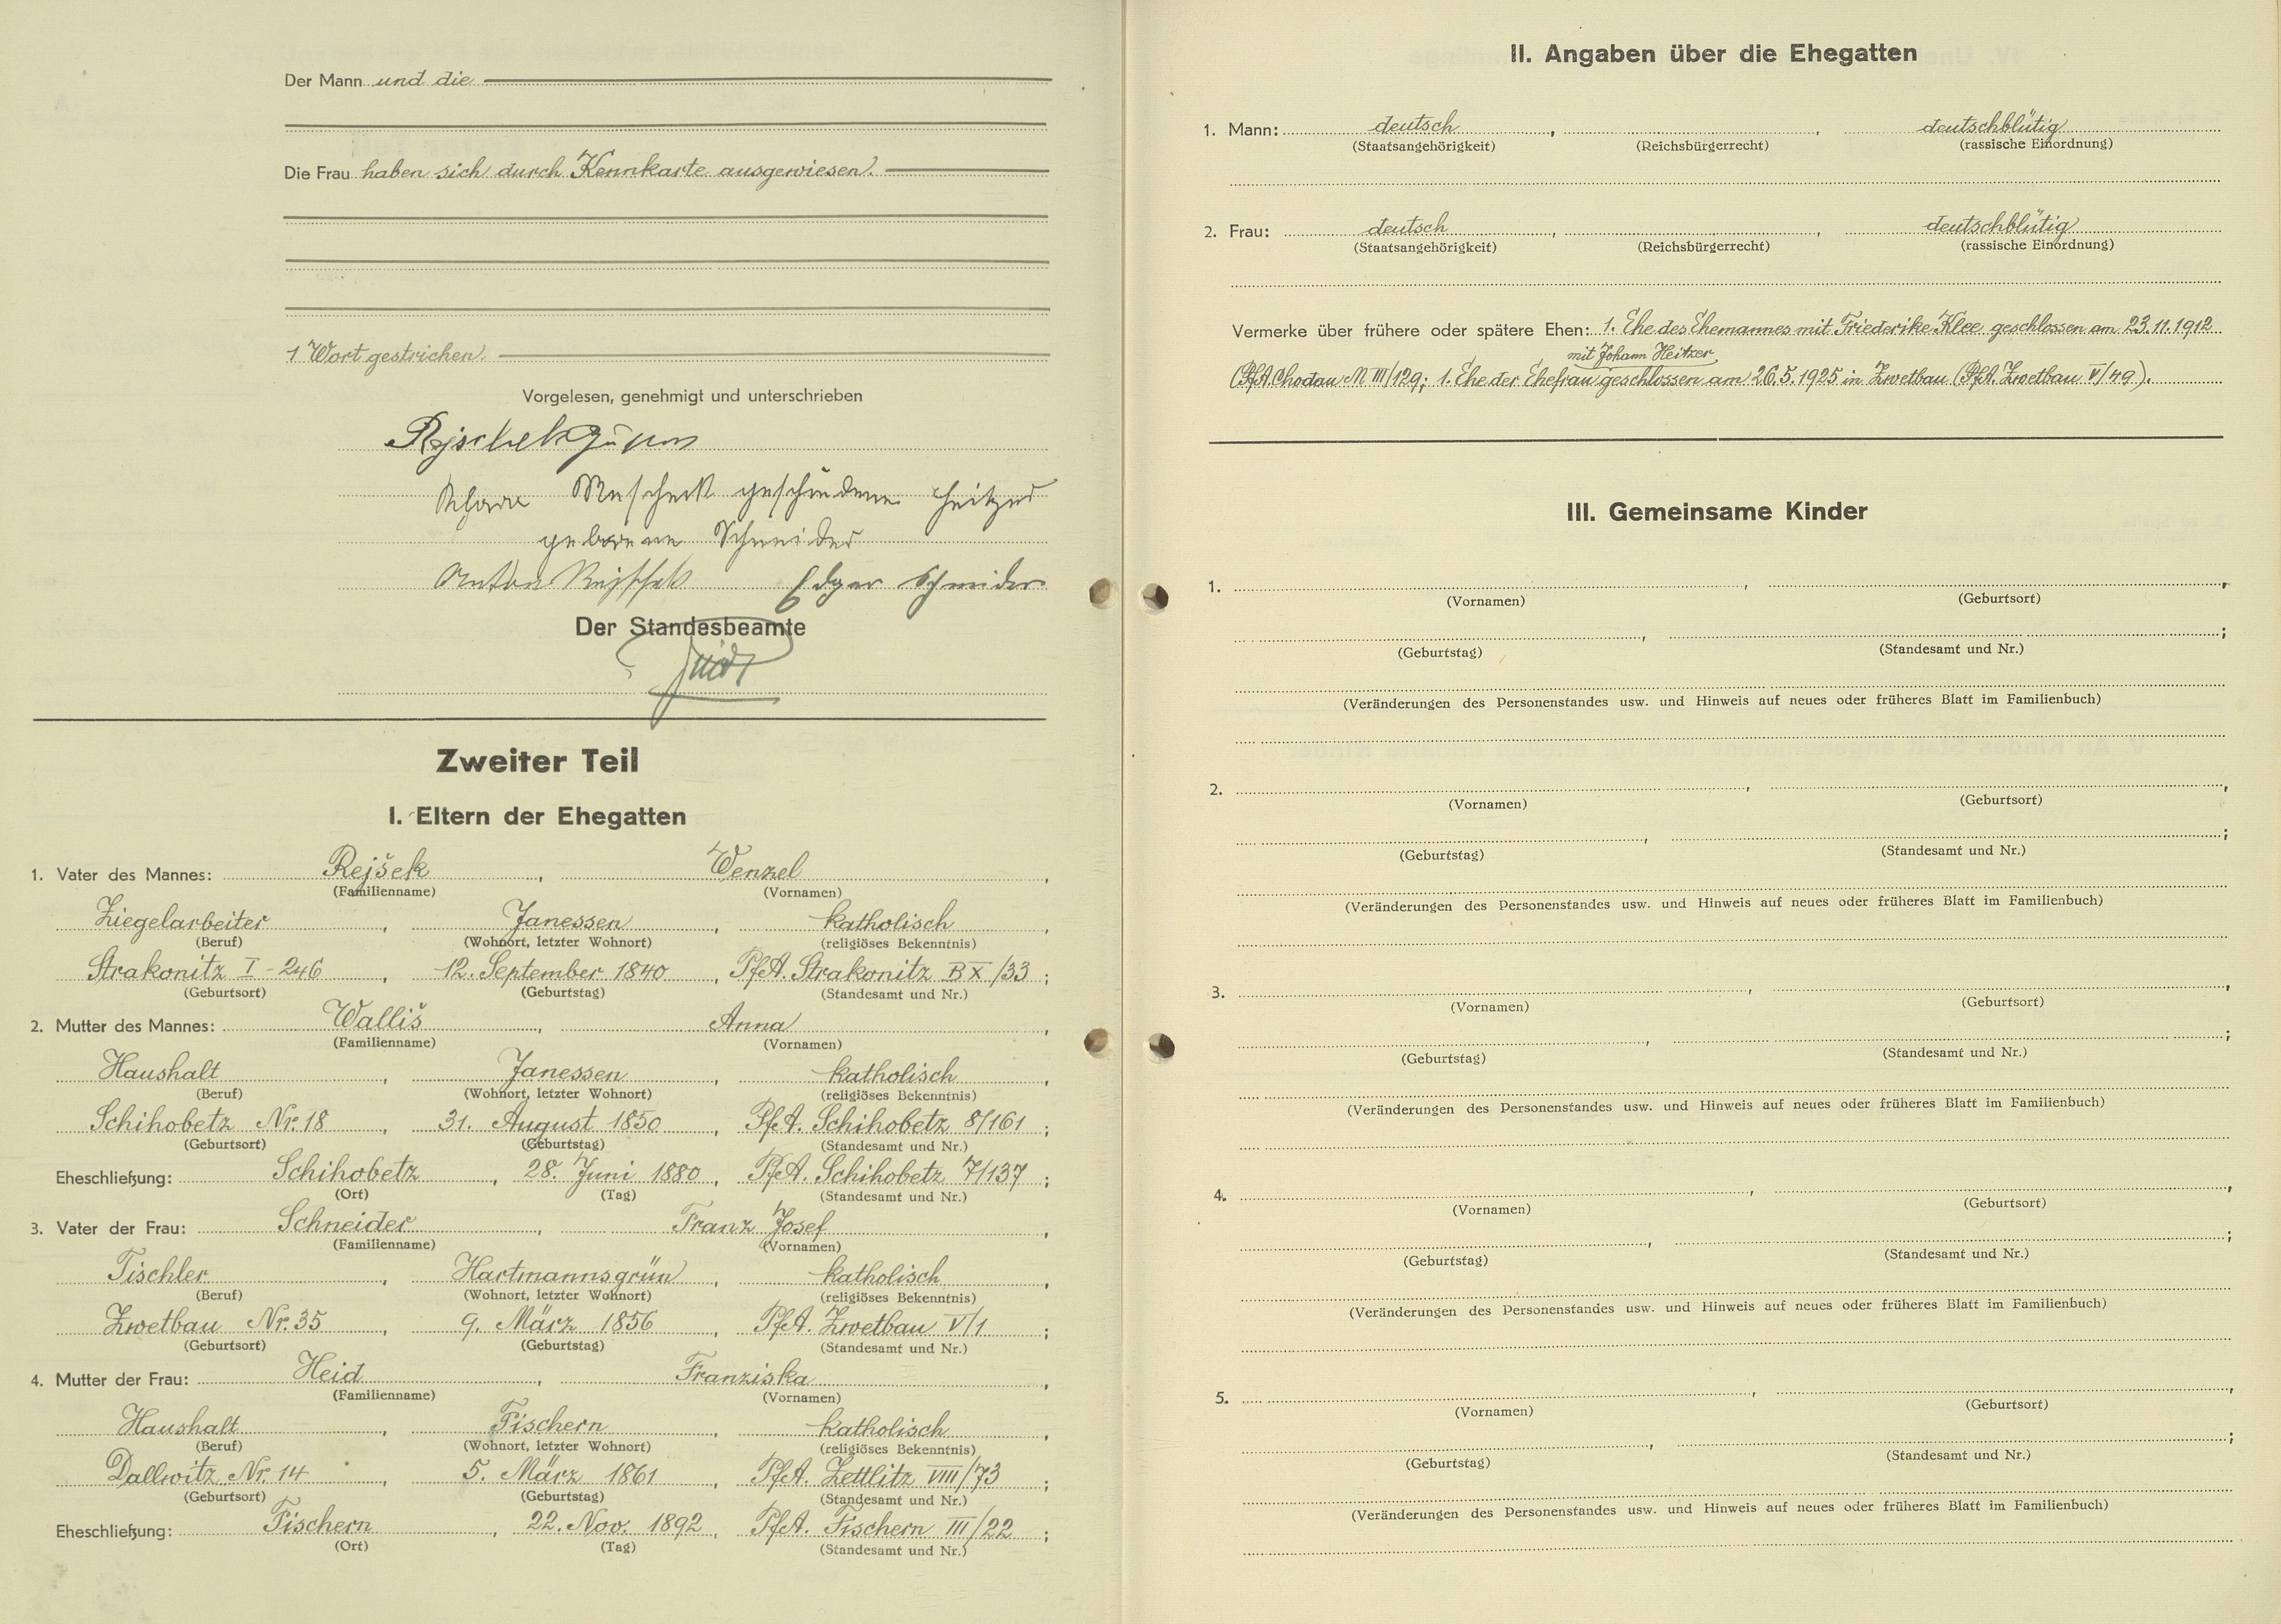 Der Mann und die
Die Frau haben sich durch Kennkarte ausgewiesen.
1 Wort gestrichen.
Vorgelesen, genehmigt und unterschrieben
geschiedene Heitzer
geborene Schneider
Anton Rejschek Edgar Schneider
Der Standesbeamte
Zweiter Teil
I. Eltern der Ehegatten
1. Vater des Mannes: Rejšek, Wenzel,
(Familienname) (Vornamen)
Ziegelarbeiter, Janessen, katholisch,
(Beruf) (Wohnort, letzter Wohnort) (religiöses Bekenntnis)
Strakonitz I - 246, 12. September 1840, PfA. Strakonitz B X/33;
(Geburtsort) (Geburtstag) (Standesamt und Nr.)
2. Mutter des Mannes: Walliš, Anna,
(Familienname) (Vornamen)
Haushalt, Janessen, katholisch,
(Beruf) (Wohnort, letzter Wohnort) (religiöses Bekenntnis)
Schihobetz Nr. 18, 31. August 1850, PfA. Schihobetz 8/161;
(Geburtsort) (Geburtstag) (Standesamt und Nr.)
Eheschließung: Schihobetz, 28. Juni 1880, PfA. Schihobetz 7/137;
(Ort) (Tag) (Standesamt und Nr.)
3. Vater der Frau: Schneider, Franz Josef,
(Familienname) (Vornamen)
Tischler, Hartmannsgrün, katholisch,
(Beruf) (Wohnort, letzter Wohnort) (religiöses Bekenntnis)
Zwetbau Nr. 35, 9. März 1856, PfA. Zwetbau V/1;
(Geburtsort) (Geburtstag) (Standesamt und Nr.)
4. Mutter der Frau: Heid, Franziska,
(Familienname) (Vornamen)
Haushalt, Fischern, katholisch,
(Beruf) (Wohnort, letzter Wohnort) (religiöses Bekenntnis)
Dallwitz Nr. 14, 5. März 1861, PfA. Zettlitz VIII/73;
(Geburtsort) (Geburtstag) (Standesamt und Nr.)
Eheschließung: Fischern, 22. Nov. 1892, PfA. Fischern III/22;
(Ort) (Tag) (Standesamt und Nr.)
II. Angaben über die Ehegatten
1. Mann: deutsch, , deutschblütig
(Staatsangehörigkeit) (Reichsbürgerrecht) (rassische Einordnung)
2. Frau: deutsch, , deutschblütig
(Staatsangehörigkeit) (Reichsbürgerrecht) (rassische Einordnung)
Vermerke über frühere oder spätere Ehen: 1. Ehe des Ehemannes mit Friederike Klee geschlossen am 23.11.1912
mit Johann Heitzer
(PfA. Chodau M III/129; 1. Ehe der Ehefrau geschlossen am 26.5.1925 in Zwetbau (PfA. Zwetbau V/49).
III. Gemeinsame Kinder
1. , ,
(Vornamen) (Geburtsort)
, ;
(Geburtstag) (Standesamt und Nr.)
(Veränderungen des Personenstandes usw. und Hinweis auf neues oder früheres Blatt im Familienbuch)
2. , ,
(Vornamen) (Geburtsort)
, ;
(Geburtstag) (Standesamt und Nr.)
(Veränderungen des Personenstandes usw. und Hinweis auf neues oder früheres Blatt im Familienbuch)
3. , ,
(Vornamen) (Geburtsort)
, ;
(Geburtstag) (Standesamt und Nr.)
(Veränderungen des Personenstandes usw. und Hinweis auf neues oder früheres Blatt im Familienbuch)
4. , ,
(Vornamen) (Geburtsort)
, ;
(Geburtstag) (Standesamt und Nr.)
(Veränderungen des Personenstandes usw. und Hinweis auf neues oder früheres Blatt im Familienbuch)
5. , ,
(Vornamen) (Geburtsort)
, ;
(Geburtstag) (Standesamt und Nr.)
(Veränderungen des Personenstandes usw. und Hinweis auf neues oder früheres Blatt im Familienbuch)